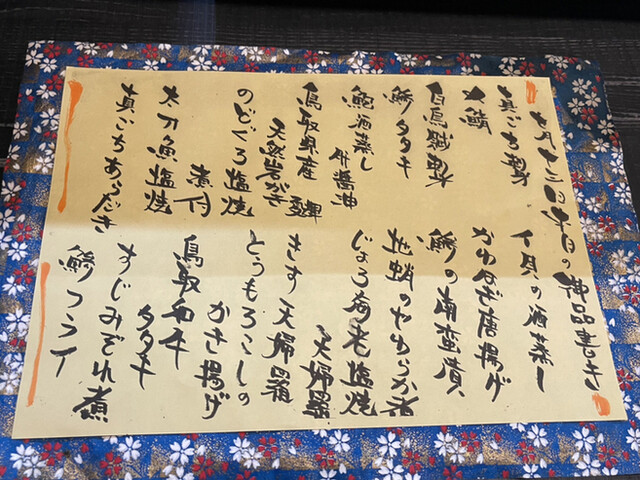 七月十三日本日の御品書き
真ごち刺身
〆鯖
白烏賊刺身
鯵タタキ
鮑酒蒸し
肝醤油
鳥取県産
天然岩がき
夏輝
のどぐろ塩焼
煮付
太刀魚塩焼
真ごちあらだき
イ貝の酒蒸し
かわはぎ唐揚げ
鯵の南蛮漬
地蛸のやわらか煮
じょろ海老塩焼
天婦羅
きす天婦羅
とうもろこしの
かき揚げ
鳥取和牛
タタキ
すじみぞれ煮
鯵フライ